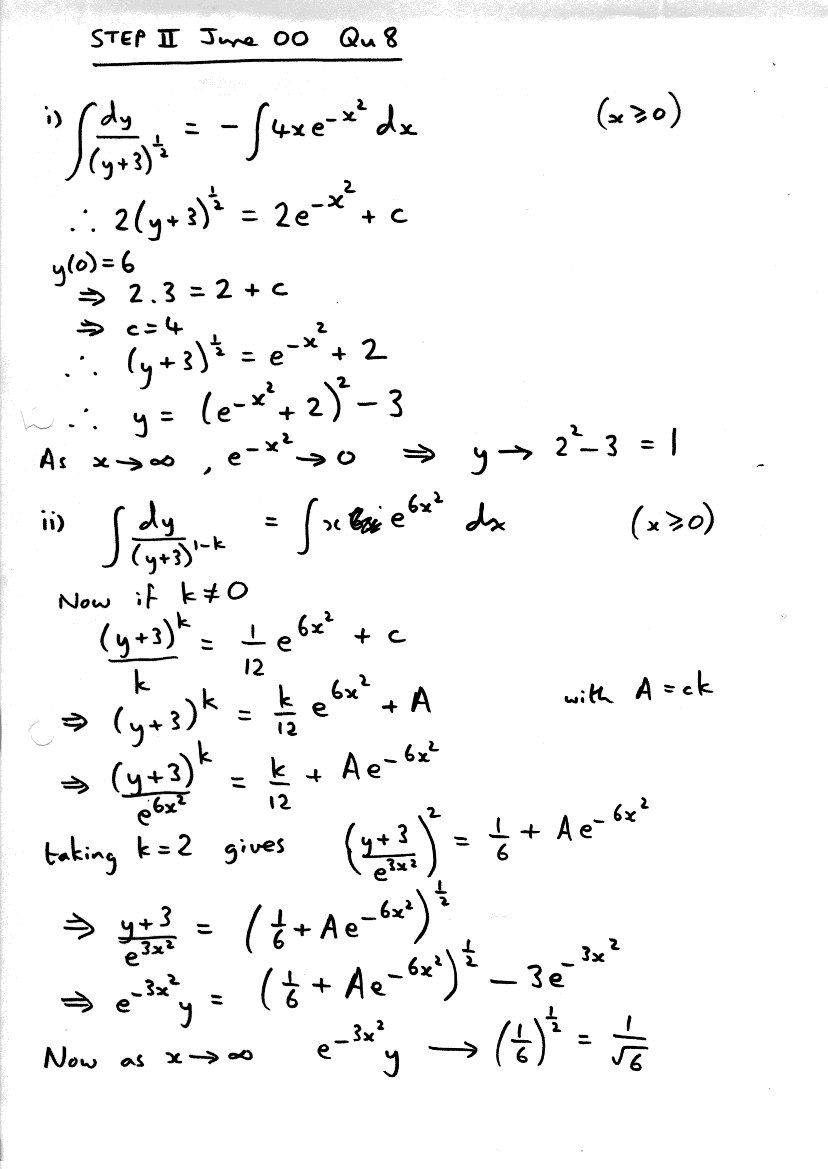 STEP II June 00 Qu 8
i) ∫ dy/(y+3)^½ = - ∫ 4xe^(-x²) dx (x ≥ 0)
∴ 2(y+3)^½ = 2e^(-x²) + c
y(0) = 6
⇒ 2.3 = 2 + c
⇒ c = 4
∴ (y+3)^½ = e^(-x²) + 2
∴ y = (e^(-x²) + 2)² - 3
As x → ∞, e^(-x²) → 0 ⇒ y → 2² - 3 = 1
ii) ∫ dy/(y+3)^(1-k) = ∫ x e^(6x²) dx (x ≥ 0)
Now if k ≠ 0
(y+3)^k/k = 1/12 e^(6x²) + c
⇒ (y+3)^k = k/12 e^(6x²) + A with A = ck
⇒ (y+3)^k/e^(6x²) = k/12 + Ae^(-6x²)
taking k = 2 gives ((y+3)/e^(3x²))² = 1/6 + Ae^(-6x²)
⇒ (y+3)/e^(3x²) = (1/6 + Ae^(-6x²))^½
⇒ e^(-3x²) y = (1/6 + Ae^(-6x²))^½ - 3e^(-3x²)
Now as x → ∞ e^(-3x²) y → (1/6)^½ = 1/√6